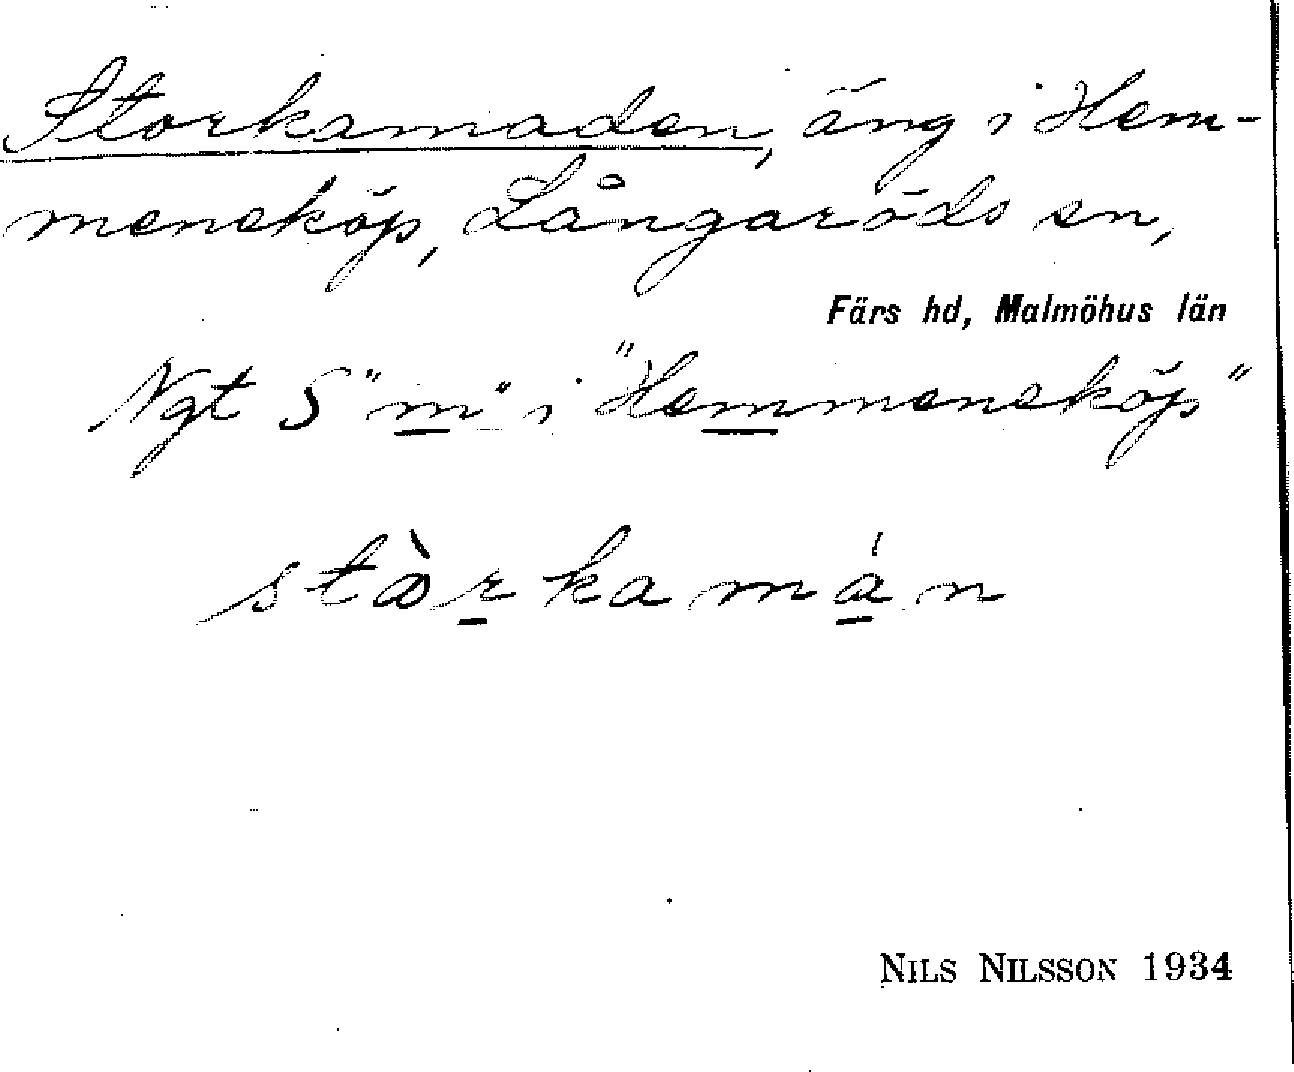 Storkamaden, äng i Hem-
menesköp, Långaröds sn,
Färs hd, Malmöhus län
Ngt S "m" i "Hemmenesköp"
stòrkamán
NILS NILSSON 1934